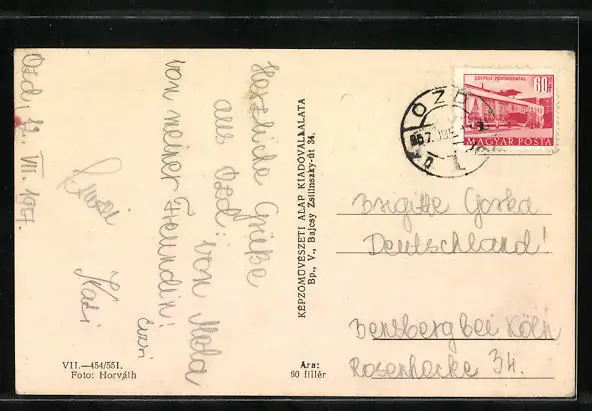 Ózd, 12. VII. 1957.
Herzliche Grüße
aus Ozd: von
von meiner Freundin!
Kati
VII.—454/551.
Foto: Horváth
KÉPZŐMŰVÉSZETI ALAP KIADÓVÁLLALATA
Bp., V., Bajcsy Zsilinszky-út 34.
Ára:
60 fillér
CSEPELI POSTAHIVATAL
60f
MAGYAR POSTA
ÓZD
Brigitte Gorka
Deutschland!
Bensberg bei Köln
Rosenhecke 34.